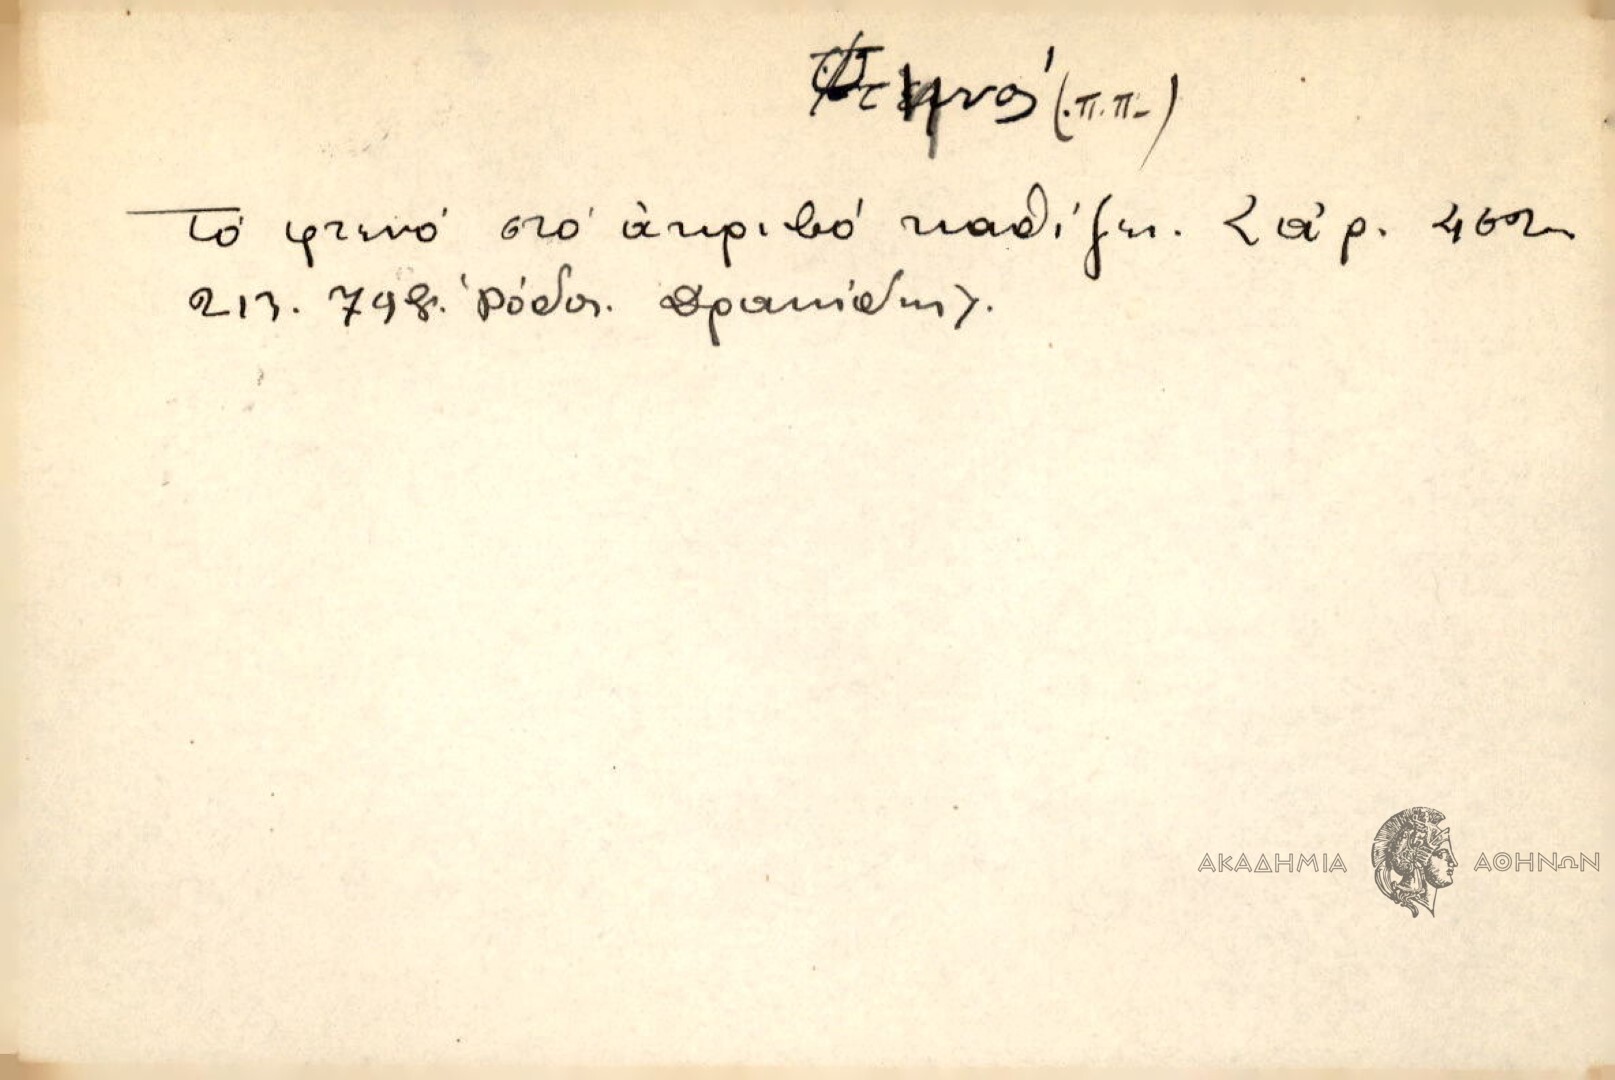 Φτηνός (.π.π.)
Τό φτενό στό ἀκριβό καθίζει. <Ἀρ. 460
σελ. 798. Ρόδος. Δρακίδης>.
ΑΚΑΔΗΜΙΑ ΑΘΗΝΩΝ